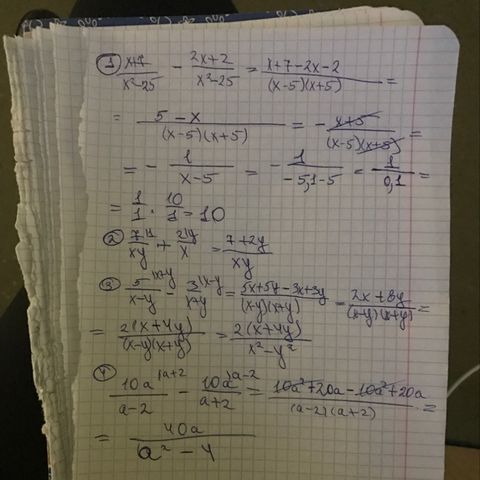 ① (x+7)/(x²-25) - (2x+2)/(x²-25) = (x+7-2x-2)/((x-5)(x+5)) =
= (5-x)/((x-5)(x+5)) = - (x+5)/((x-5)(x+5)) =
= - 1/(x-5) = - 1/(-5,1-5) = 1/0,1 =
= 1/1 · 10/1 = 10
② 7/xy + 2/x = (7+2y)/xy
③ 5/(x-y) - 3/(x+y) = (5x+5y-3x+3y)/((x-y)(x+y)) = (2x+8y)/((x-y)(x+y)) =
= 2(x+4y)/((x-y)(x+y)) = 2(x+4y)/(x²-y²)
④ 10a/(a-2) - 10a/(a+2) = (10a²+20a-10a²+20a)/((a-2)(a+2)) =
= 40a/(a²-4)